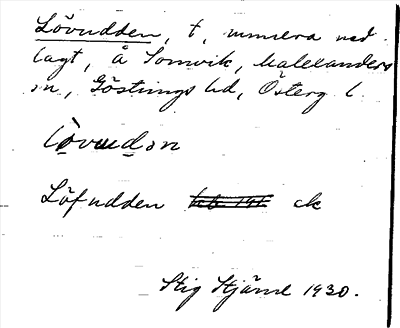 Lövudden, t, numera ned-
lagt, å Somvik, Malexanders
sn, Göstrings hd, Österg. l.
lövudən
Löfudden ek
Stig Stjärne 1930.